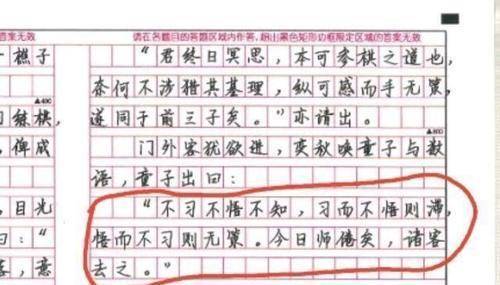 答案无效
请在各题目的答题区域内作答,超出黑色矩形边框限定区域的答案无效
樵子
练棋,
俾成
目光
曰:“
,意
“君终日冥思,本可参棋之道也,
奈何不涉猎其基理,纵可感而手无策,
遂同于前三子矣。”亦请出。
门外客犹欲进,奕秋唤童子与数
语,童子出曰:
“不习不悟不知,习而不悟则滞,
悟而不习则无策。今日师倦矣,诸客
去之。”